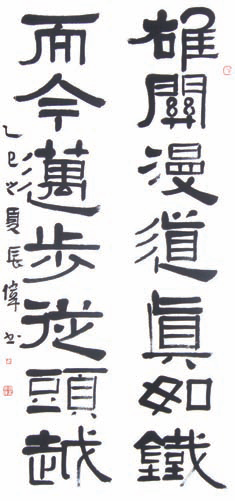 雄關漫道眞如鐵
而今邁步從頭越
乙巳之夏長偉书